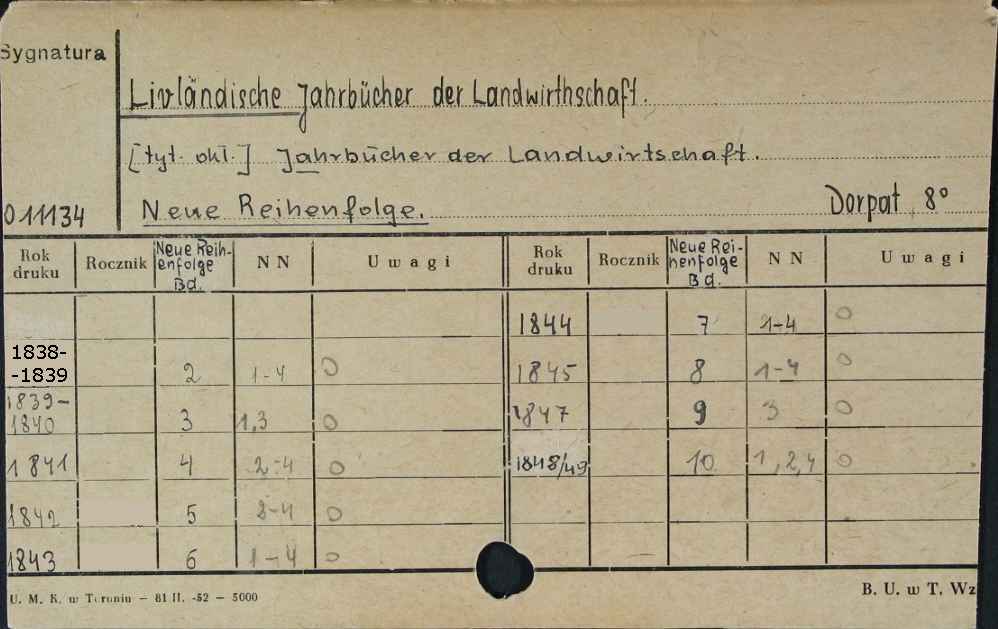 Sygnatura
Livländische Jahrbücher der Landwirthschaft.
[tyt. okł.] Jahrbücher der Landwirtschaft.
011134 Neue Reihenfolge. Dorpat 8°
Rok druku Rocznik Neue Reih-enfolge Bd. NN Uwagi Rok druku Rocznik Neue Rei-henfolge Bd. NN Uwagi
1844 7 1-4 0
1838-
-1839 2 1-4 0 1845 8 1-4 0
1839-
1840 3 1,3 0 1847 9 3 0
1841 4 2-4 0 1848/49 10 1,2,4 0
1842 5 2-4 0
1843 6 1-4 0
U. M. K. w Toruniu — 81 II. -52 — 5000 B. U. w T. Wz